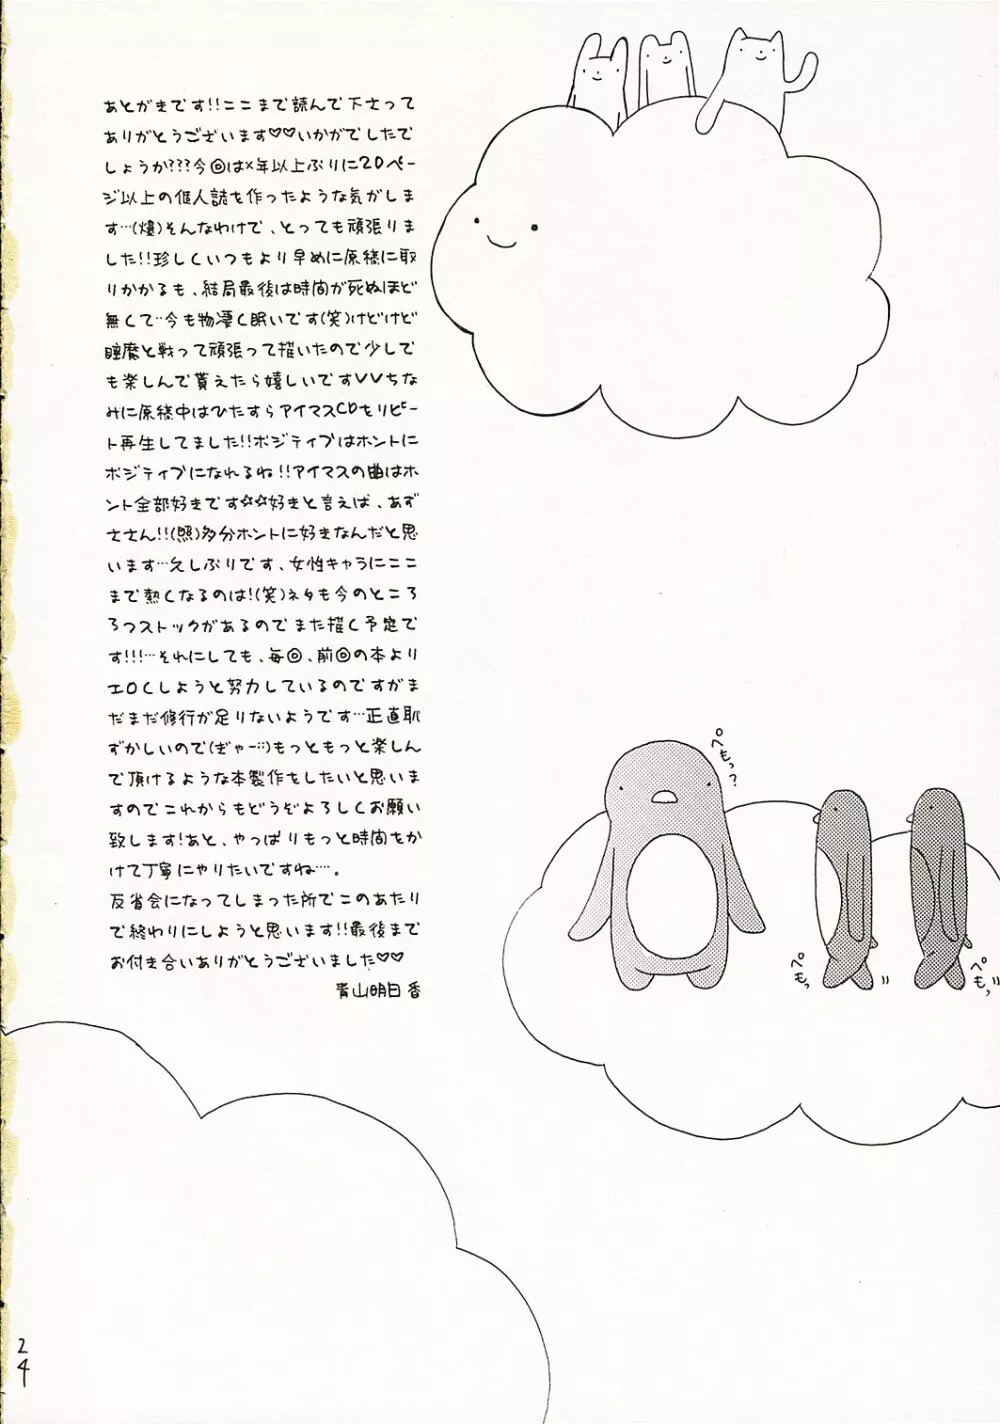 あとがきです!!ここまで読んで下さって
ありがとうございます♡♡いかがでしたで
しょうか???今回は×年以上ぶりに20ペー
ジ以上の個人誌を作ったような気がしま
す…(爆)そんなわけで、とっても頑張りま
した!!珍しくいつもより早めに原稿に取
りかかるも、結局最後は時間が死ぬほど
無くて…今も物凄く眠いです(笑)けどけど
睡魔と戦って頑張って描いたので少しで
も楽しんで貰えたら嬉しいですVVちな
みに原稿中はひたすらアイマスCDをリピー
ト再生してました!!ポジティブはホントに
ポジティブになれるね!!アイマスの曲はホ
ント全部好きです☆☆好きと言えば、あず
ささん!!(照)多分ホントに好きなんだと思
います…久しぶりです、女性キャラにここ
まで熱くなるのは!(笑)ネタも今のところ
3つストックがあるのでまた描く予定で
す!!!…それにしても、毎回、前回の本より
エロくしようと努力しているのですがま
だまだ修行が足りないようです…正直恥
ずかしいので(ぎゃー…)もっともっと楽しん
で頂けるような本製作をしたいと思いま
すのでこれからもどうぞよろしくお願い
致します!あと、やっぱりもっと時間をか
けて丁寧にやりたいですね…。
反省会になってしまった所でこのあたり
で終わりにしようと思います!!最後まで
お付き合いありがとうございました♡♡
青山明日香
ぺもっ?
ペもっ
ペもっ
24